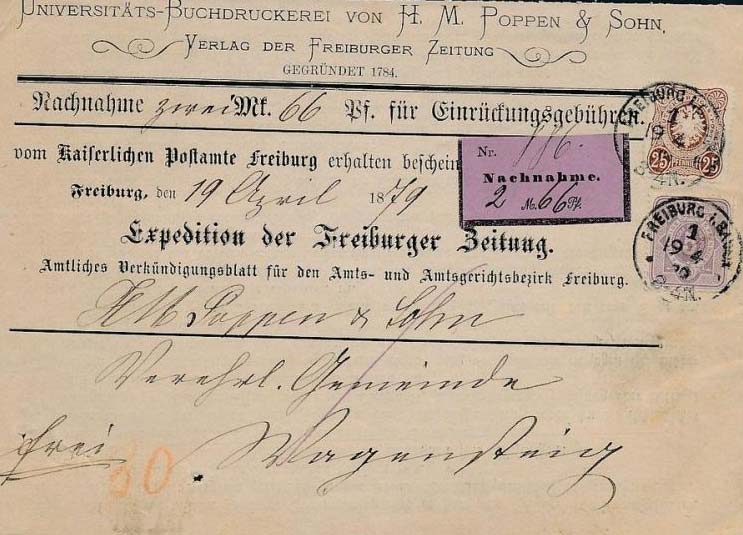 UNIVERSITÄTS-BUCHDRUCKEREI VON H. M. POPPEN & SOHN,
VERLAG DER FREIBURGER ZEITUNG
GEGRÜNDET 1784.
Nachnahme zwei Mk. 66 Pf. für Einrückungsgebühren
vom Kaiserlichen Postamte Freiburg erhalten beschein
Freiburg, den 19 April 1879
Nr. 116.
Nachnahme.
2 M. 66 Pf.
Expedition der Freiburger Zeitung.
Amtliches Verkündigungsblatt für den Amts- und Amtsgerichtsbezirk Freiburg.
HM Poppen & Sohn
Verehrl. Gemeinde
frei 30 Wagensteig
25 25
FREIBURG
1
19 4
FREIBURG I. BADEN
1
19 4
3-4N.